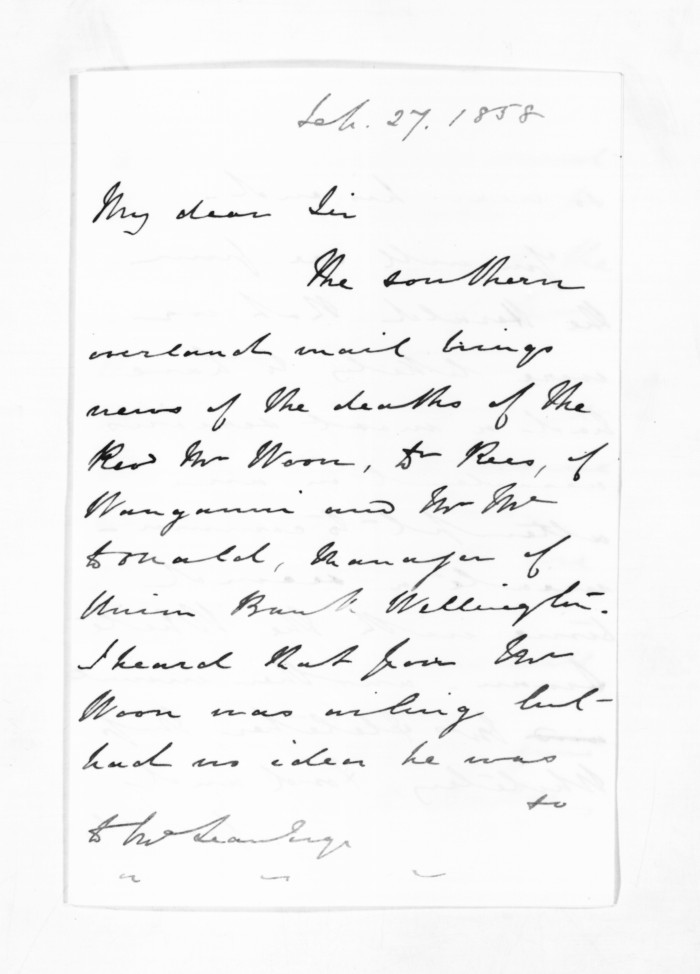 Feb. 27. 1858
My dear Sir
The southern
overland mail brings
news of the deaths of the
Revd Mr Woon, Dr Rees, of
Wanganui and Mr Mc
Donald, Manager of
Union Bank Wellington.
I heard that poor Mr
Woon was ailing but
had no idea he was
to
D McLean Esqr